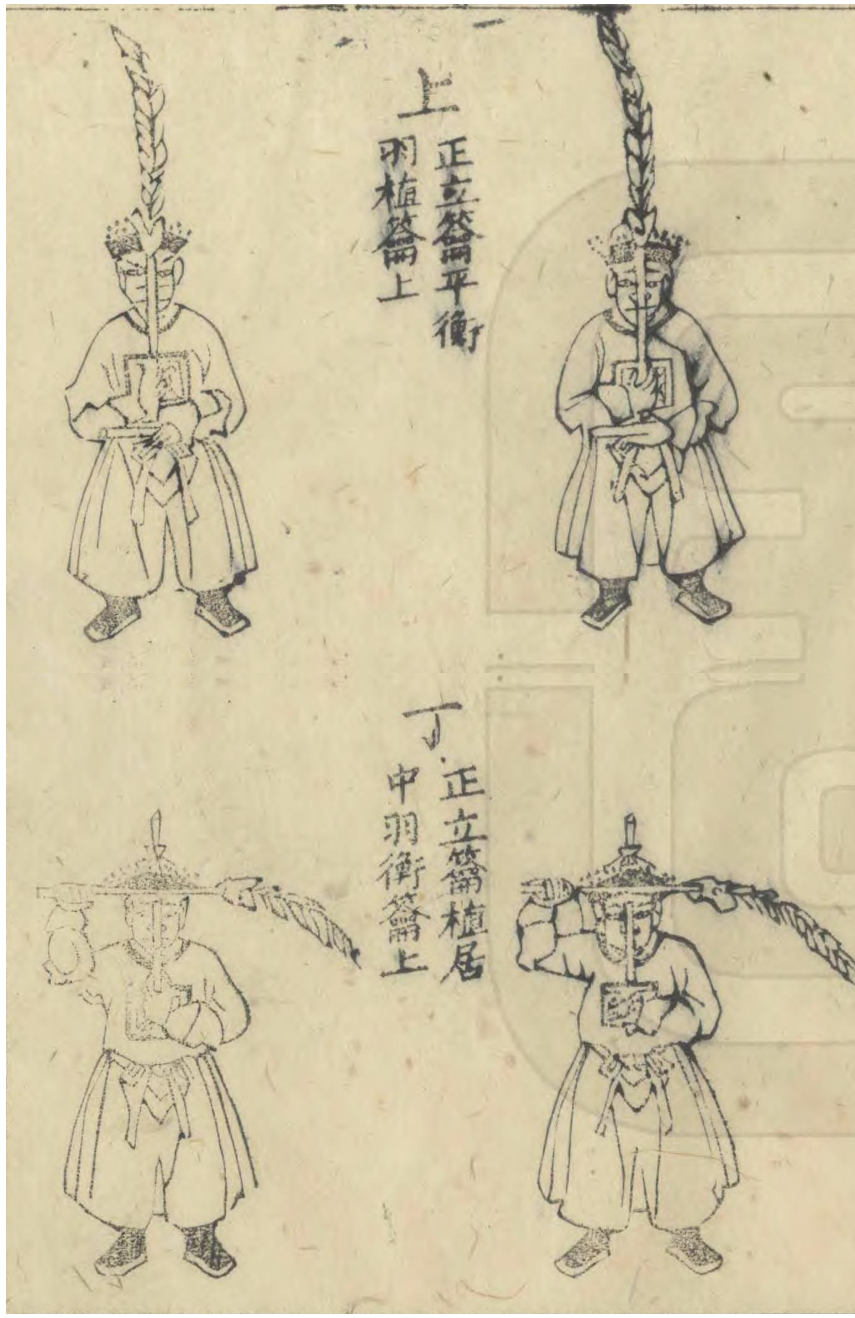 上
正立籥平衡
羽植籥上
丁
正立籥植居
中羽衡籥上